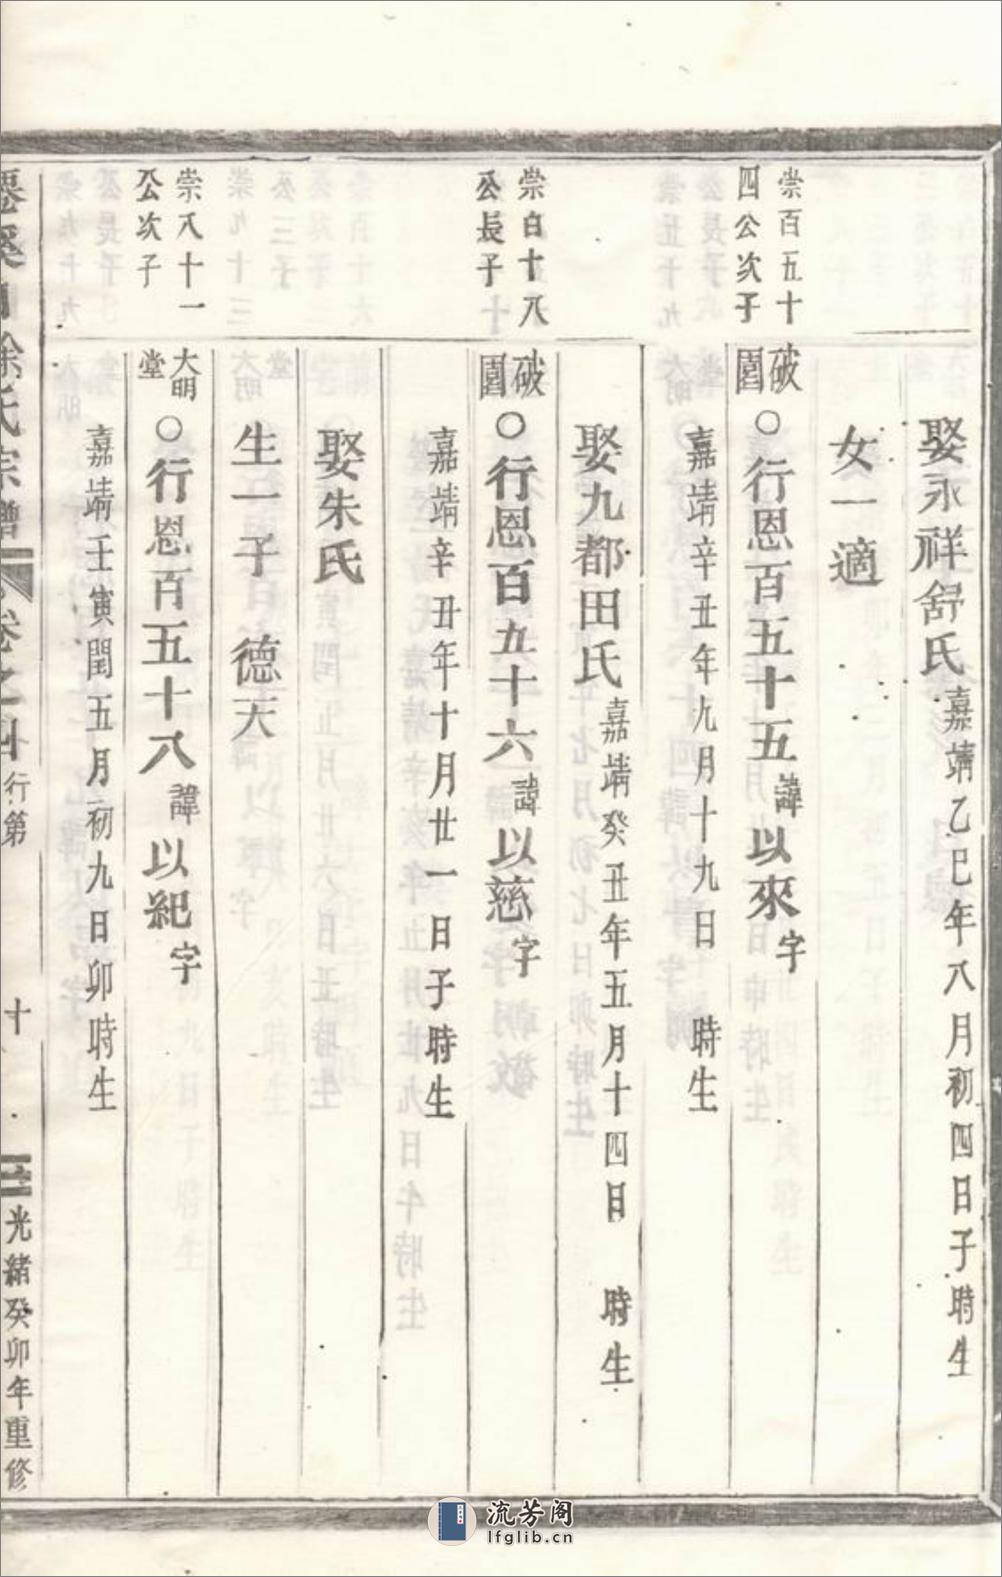 娶永祥舒氏 嘉靖乙巳年八月初四日子時生
女一 適
崇百五十
四公次子
破園○行恩百五十五 諱以來 字
嘉靖辛丑年九月十九日 時生
娶九都田氏 嘉靖癸丑年五月十四日 時生
崇百十八
公長子
破園○行恩百五十六 諱以慈 字
嘉靖辛丑年十月廿一日子時生
娶朱氏
生一子 德天
崇八十一
公次子
大明堂○行恩百五十八 諱以紀 字
嘉靖壬寅閏五月初九日卯時生
徐氏宗譜 卷之 行第 十 光緒癸卯年重修
流芳阁
lfglib.cn